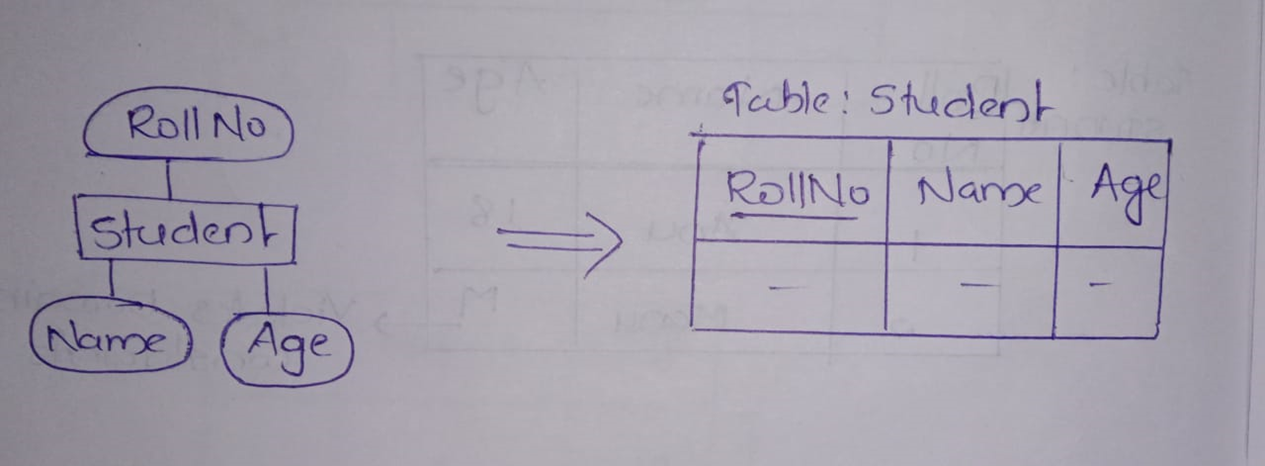 RollNo
Student
Name Age
Table: Student
RollNo Name Age
- - -